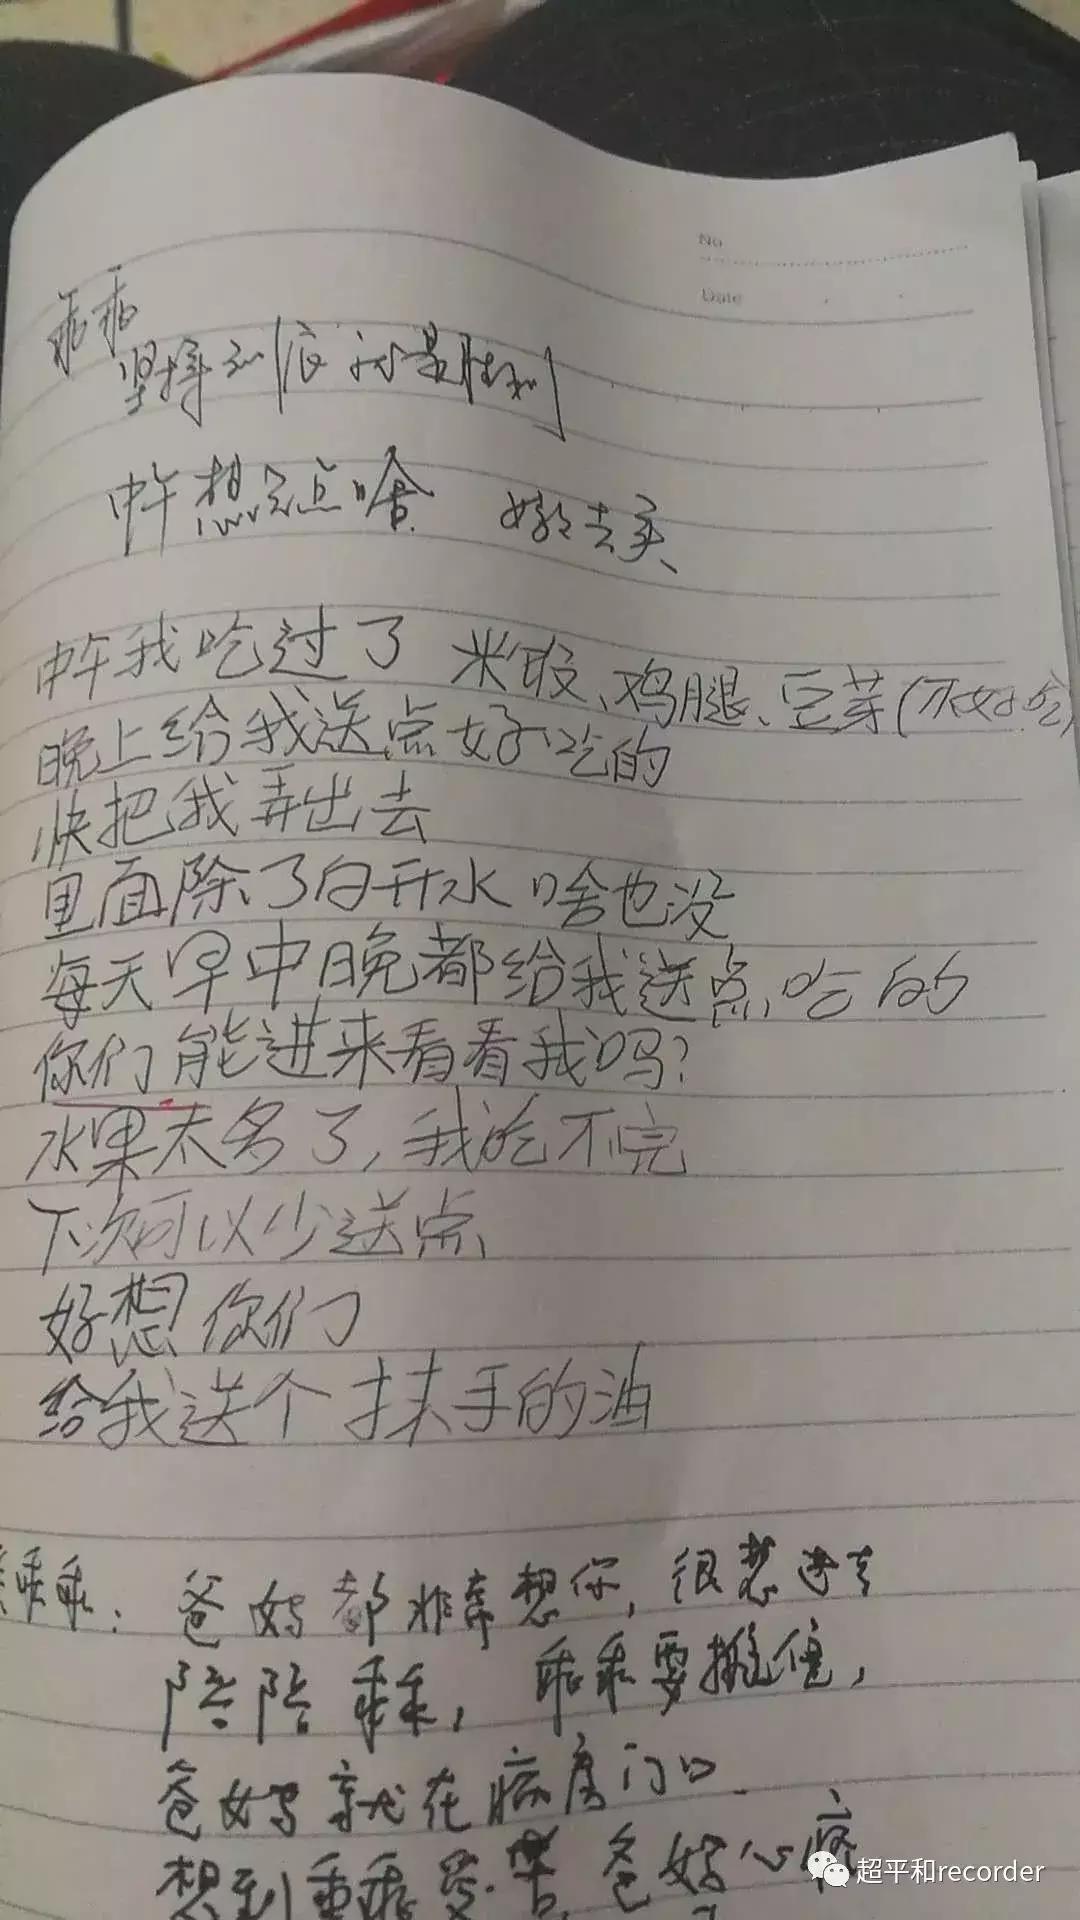 No
Date
乖乖
坚持到底就是胜利
中午想吃点啥 妈去买
中午我吃过了 米饭、鸡腿、豆芽(不好吃)
晚上给我送点好吃的
快把我弄出去
里面除了白开水啥也没
每天早中晚都给我送点吃的
你们能进来看看我吗?
水果太多了,我吃不完
下次可以少送点
好想你们
给我送个抹手的油
乖乖: 爸妈都非常想你,很想进去
陪陪乖乖,乖乖要挺住,
爸妈就在病房门口.
想到乖乖受苦,爸妈心疼
超平和recorder